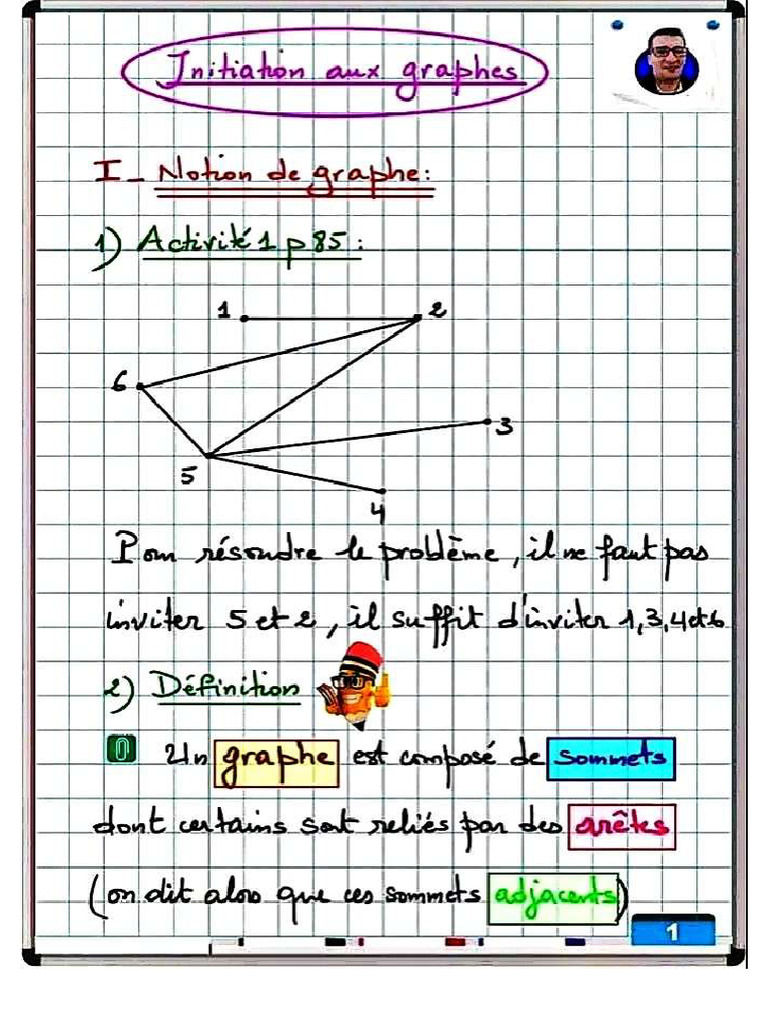 Initiation aux graphes
I - Notion de graphe:
1) Activité 1 p 85:
1
2
6
3
5
4
Pour résoudre le problème, il ne faut pas
inviter 5 et 2, il suffit d'inviter 1,3,4 et 6
2) Définition
0 Un graphe est composé de sommets
dont certains sont reliés par des arêtes
(on dit alors que ces sommets adjacents)
1